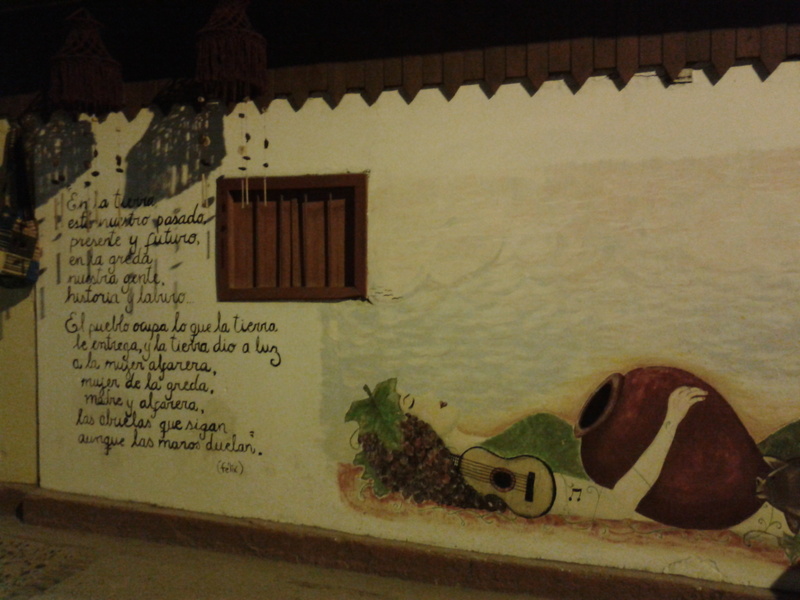 En la tierra
está nuestro pasado,
presente y futuro,
en la greda
nuestra gente,
historia y laburo...
El pueblo ocupa lo que la tierra
le entrega, y la tierra dio a luz
a la mujer alfarera,
mujer de la greda,
madre y alfarera,
las abuelas que sigan
aunque las manos duelan".